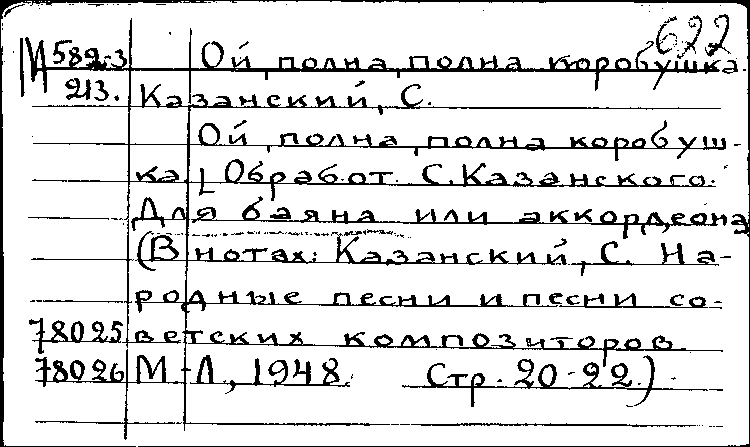 622
М 582-3 Ой, полна, полна коробушка.
213. Казанский, С.
Ой, полна, полна коробуш-
ка. Обработ. С. Казанского.
Для баяна или аккордеона
(В нотах: Казанский, С. На-
родные песни и песни со-
78025 ветских композиторов.
78026 М-Л, 1948. Стр. 20-22.)